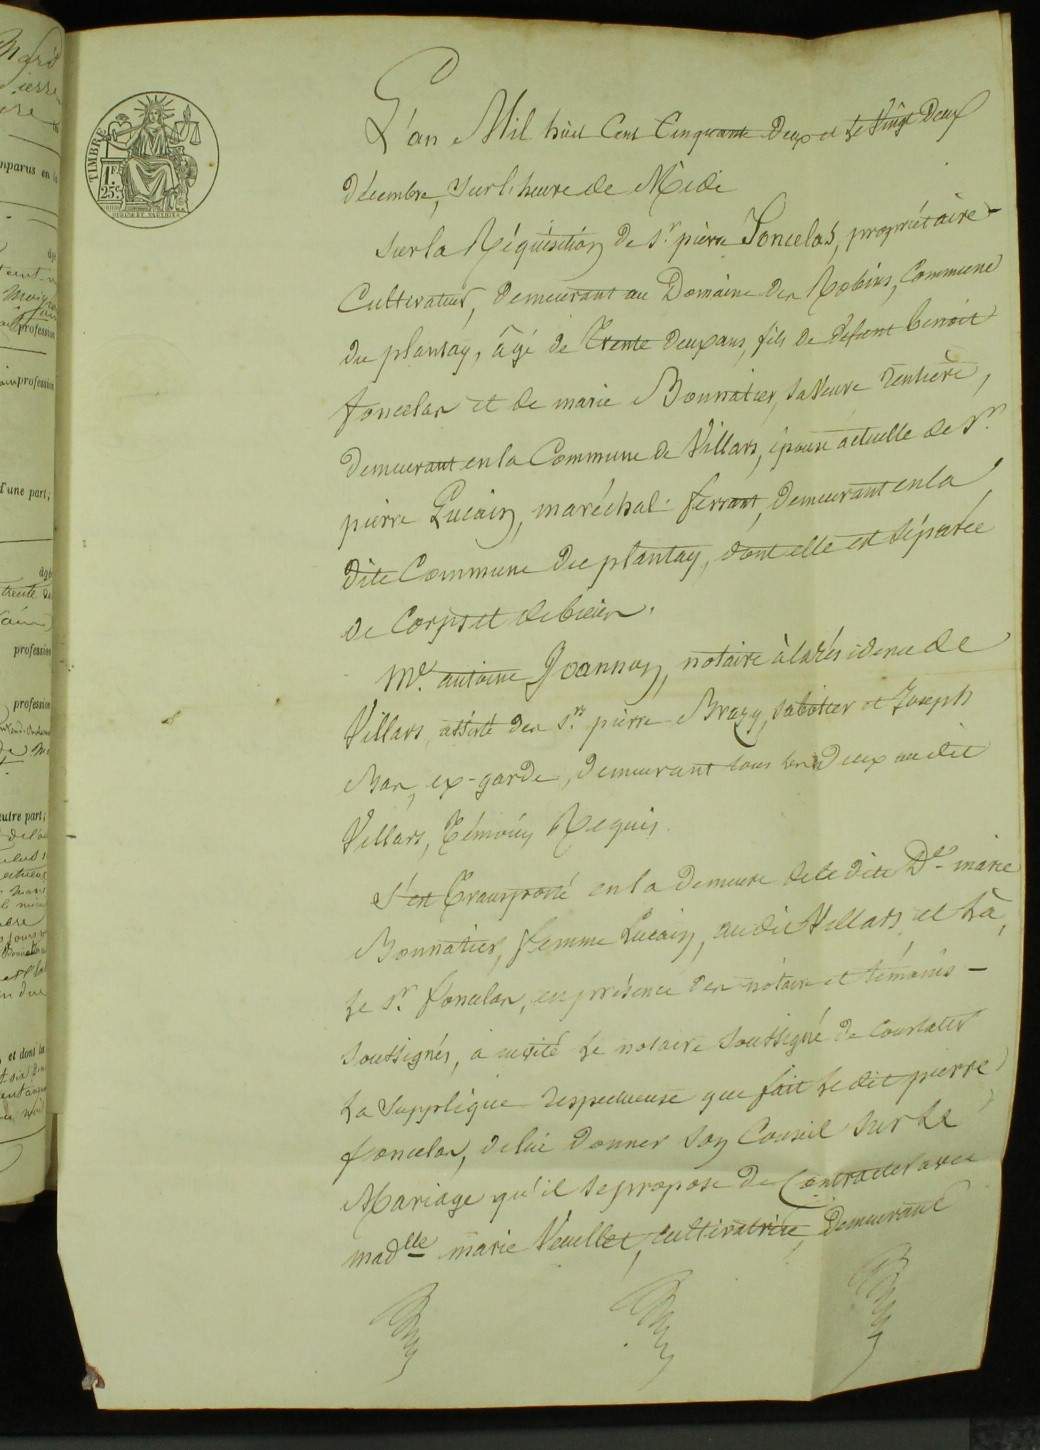 TIMBRE
1F.
25c.
L'an Mil huit Cent Cinquante Deux et le Vingt Deux
décembre, sur l'heure de Midi
Sur la Réquisition de Sr. pierre Foncelas, propriétaire-
Cultivateur, demeurant au Domaine des Robins, Commune
du plantay, âgé de Trente deux ans, fils de défunt benoit
foncelas et de marie Bonnatier, sa Veuve rentière,
demeurant en la Commune de Villars, épouse actuelle de Sr.
pierre Lucain, maréchal-ferrant, demeurant en la
dite Commune du plantay, dont elle est séparée
de Corps et de biens.
Me. antoine Joannon, notaire à la résidence de
Villars, assisté des Srs. pierre Brazy, sabotier et Joseph
Bar, ex-garde, demeurant tous les deux au dit
Villars, Témoins Requis.
S'est Transporté en la demeure de la dite De. marie
Bonnatier, femme Lucain, au dit Villars et là,
le Sr. foncelas, en présence des notaire et témoins -
soussignés, a invité le notaire soussigné de constater
la supplique respectueuse que fait le dit pierre
foncelas, de lui donner son Conseil sur le
Mariage qu'il se propose de Contracter avec
madlle marie Veuillet, cultivatrice, demeurant